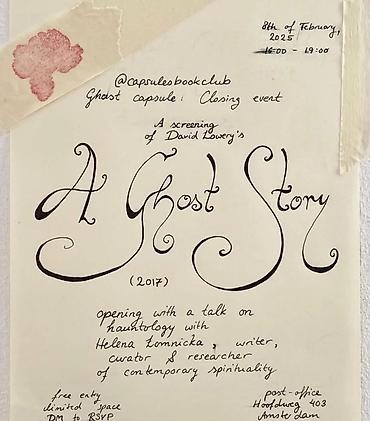 8th of February,
2025
16:00 - 19:00
@capsulesbookclub
Ghost capsule: Closing event
A screening
of David Lowery's
A Ghost Story
(2017)
opening with a talk on
hauntology with
Helena Łomnicka, writer,
curator & researcher
of contemporary spirituality
free entry
limited space
DM to RSVP
post-office
Hoofdweg 403
Amsterdam